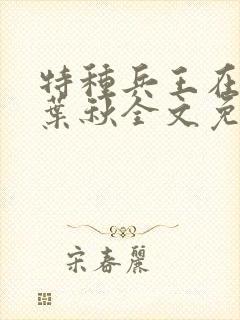 特種兵王在
葉秋全文免
宋春麗